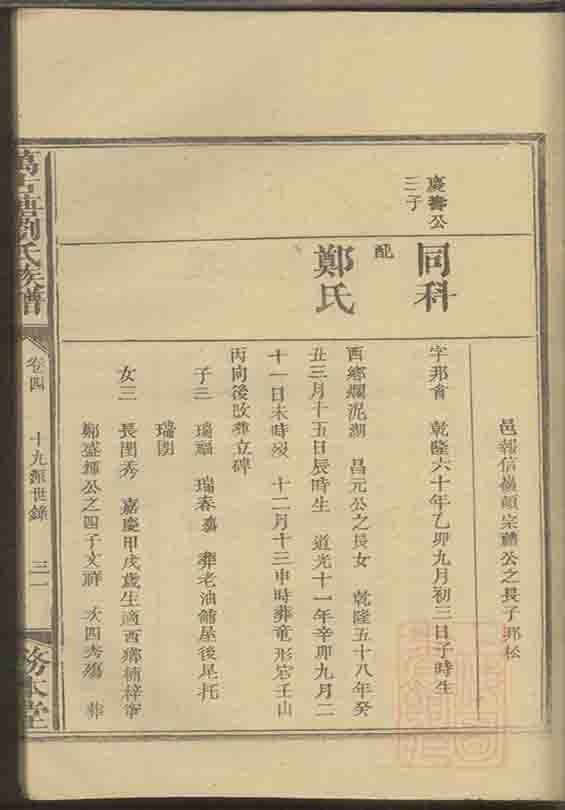 邑報信橫頔宗禮公之長子邦松
慶壽公
三子
同科
字邦省 乾隆六十年乙卯九月初三日子時生
配
鄭氏
西鄉爛泥湖 昌元公之長女 乾隆五十八年癸
丑三月十五日辰時生 道光十一年辛卯九月二
十一日未時歿 十二月十三申時葬竜形窩壬山
丙向後改葬立碑
子三 瑞福 瑞春殤 葬老油鋪屋後尾托
瑞開
女三 長閏秀 嘉慶甲戌歲生適西鄉楠梓寧
鄭盛輝公之四子文祥 次四秀殤 葬
萬古塘劉氏族譜
卷四
十九派世錄
三一
務本堂